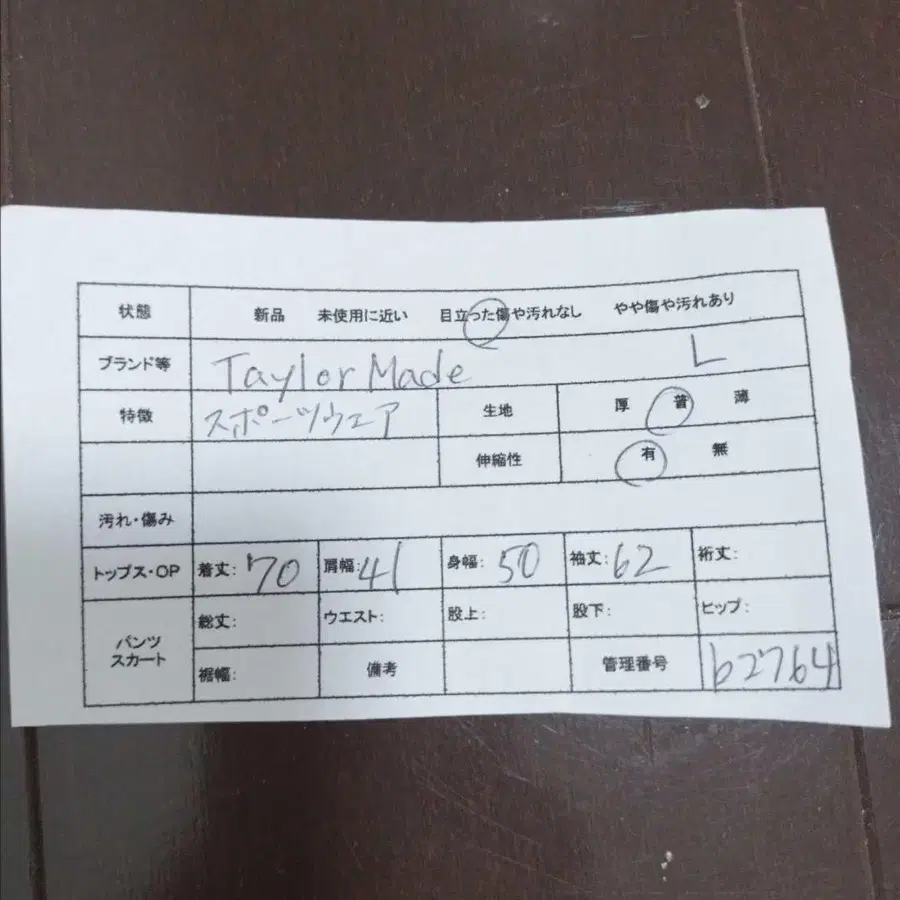 状態 新品 未使用に近い 目立った傷や汚れなし やや傷や汚れあり
ブランド等 Taylor Made L
特徴 スポーツウェア 生地 厚 普 薄
伸縮性 有 無
汚れ・傷み
トップス・OP 着丈: 70 肩幅: 41 身幅: 50 袖丈: 62 裄丈:
パンツ スカート 総丈: ウエスト: 股上: 股下: ヒップ:
裾幅: 備考 管理番号 b2764